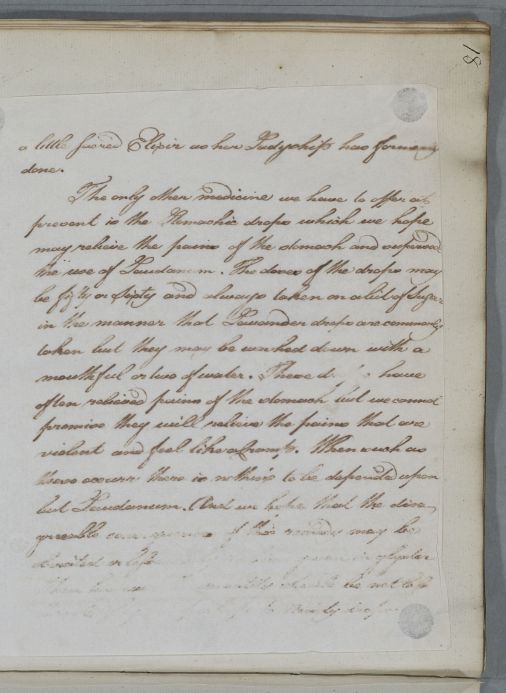 18
a little sacred Elixir as her Ladyship has formerly
done.
The only other medicine we have to offer at
present is the Stomachic drops which we hope
may relieve the pains of the stomach and supersede
the use of Laudanum. The doses of the drops may
be fifty or sixty and always taken on a bit of Sugar
in the manner that Lavander drops are commonly
taken but they may be washed down with a
mouthful or two of water. These have
often relieved pains of the stomach but we cannot
promise they will relieve the pains that are
violent and feel like a Cramp. When such as
these occurr there is nothing to be depended upon
but Laudanum. And we hope that the disa
greeable consequences of this remedy may be
obviated
be not less
drops